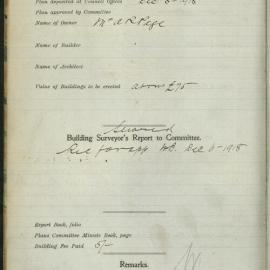 Plan deposited at Council Office Dec 6 - 1918
Plan approved by Committee
Name of Owner Mr A R Page
Name of Builder
Name of Architect
Value of Buildings to be erected about £75
Building Surveyor's Report to Committee.
Rec for app Dec 6 - 1918
Report Book, folio
Plans Committee Minute Book, page
Building Fee Paid 5/-
Remarks.